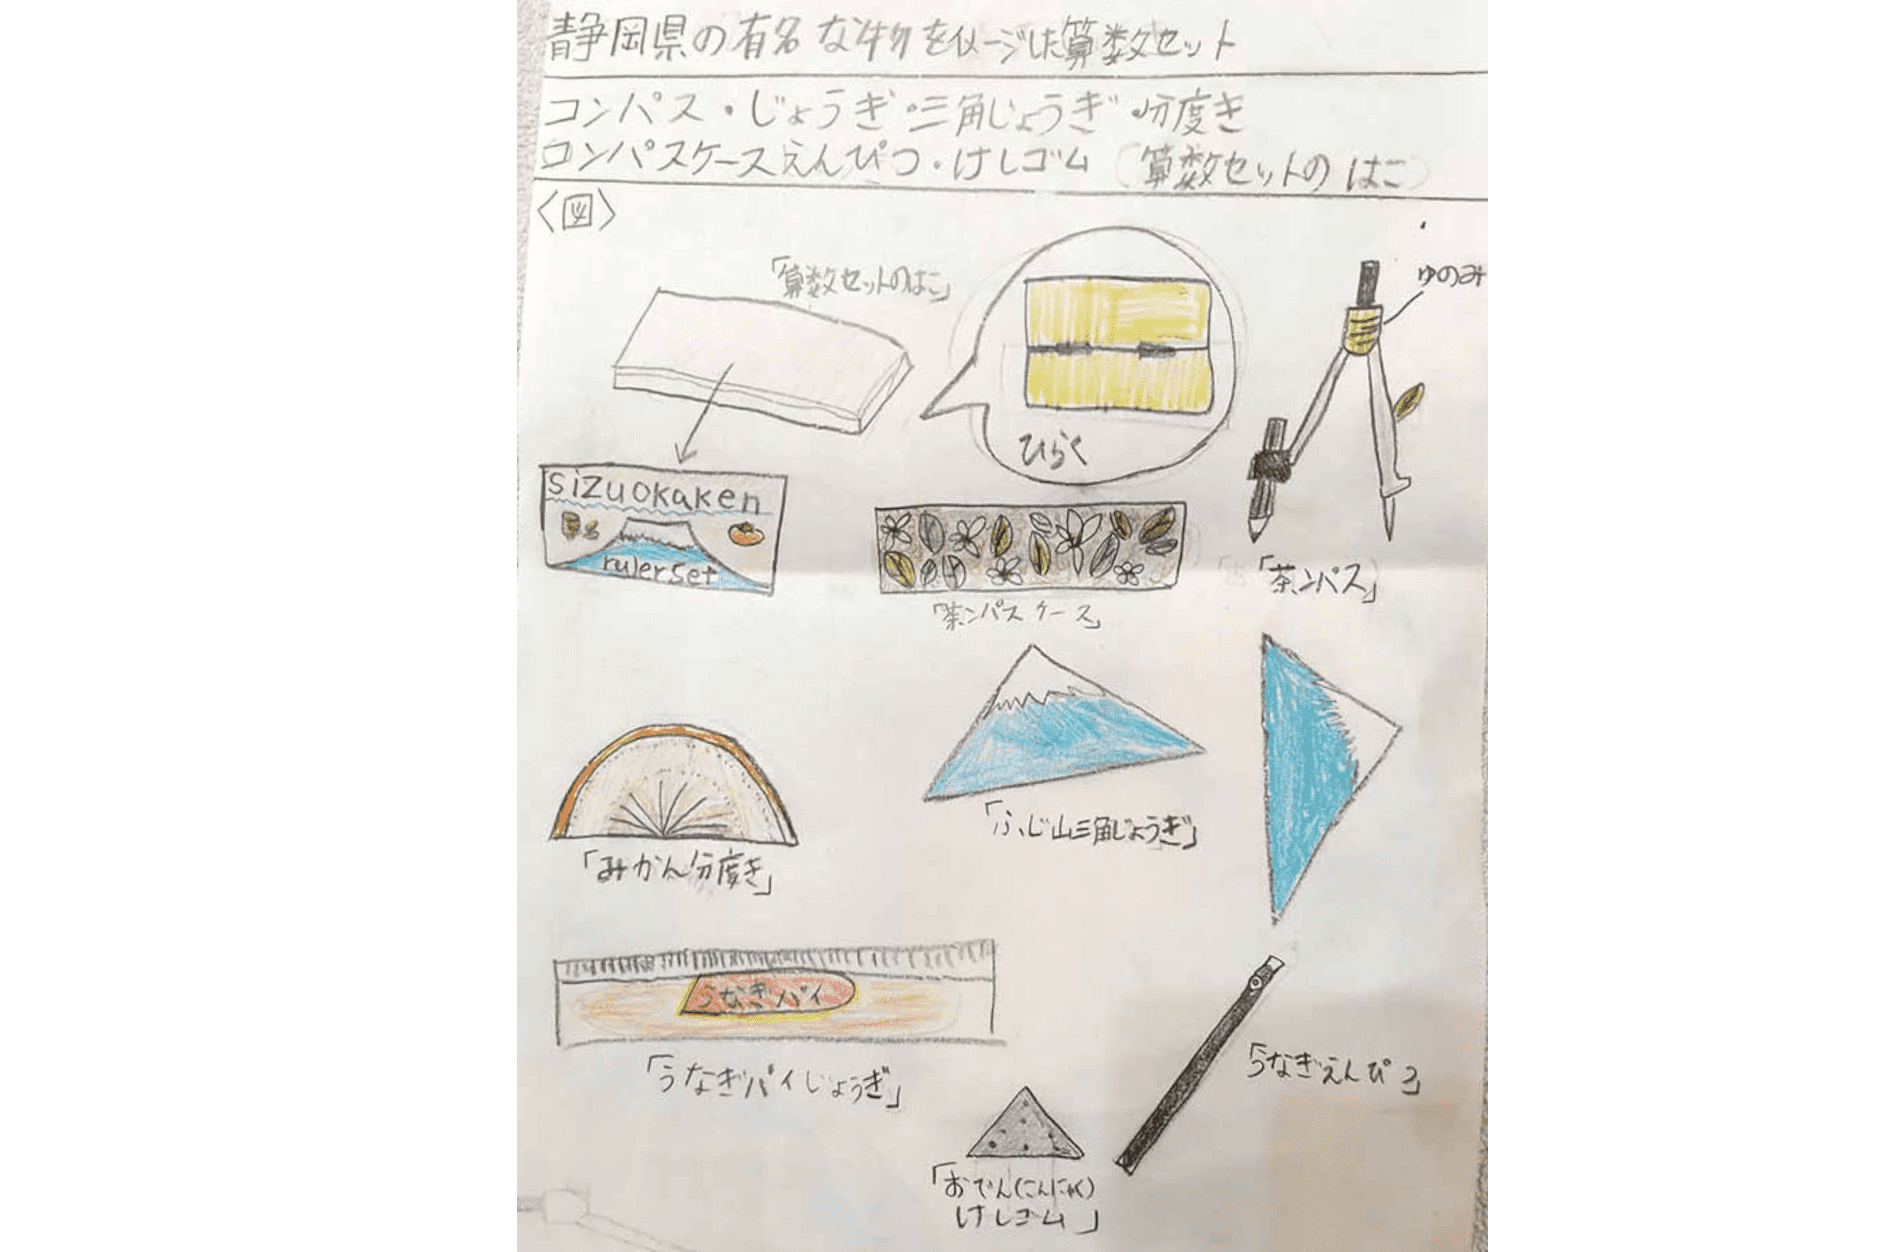 静岡県の有名な物をイメージした算数セット
コンパス・じょうぎ・三角じょうぎ・分度き
コンパスケースえんぴつ・けしゴム(算数セットのはこ)
〈図〉
「算数セットのはこ」
ひらく
ゆのみ
sizuokaken
rulerset
「茶ンパスケース」
「茶ンパス」
「みかん分度き」
「ふじ山三角じょうぎ」
うなぎパイ
「うなぎパイじょうぎ」
「うなぎえんぴつ」
「おでん(こんにゃく)
けしゴム」